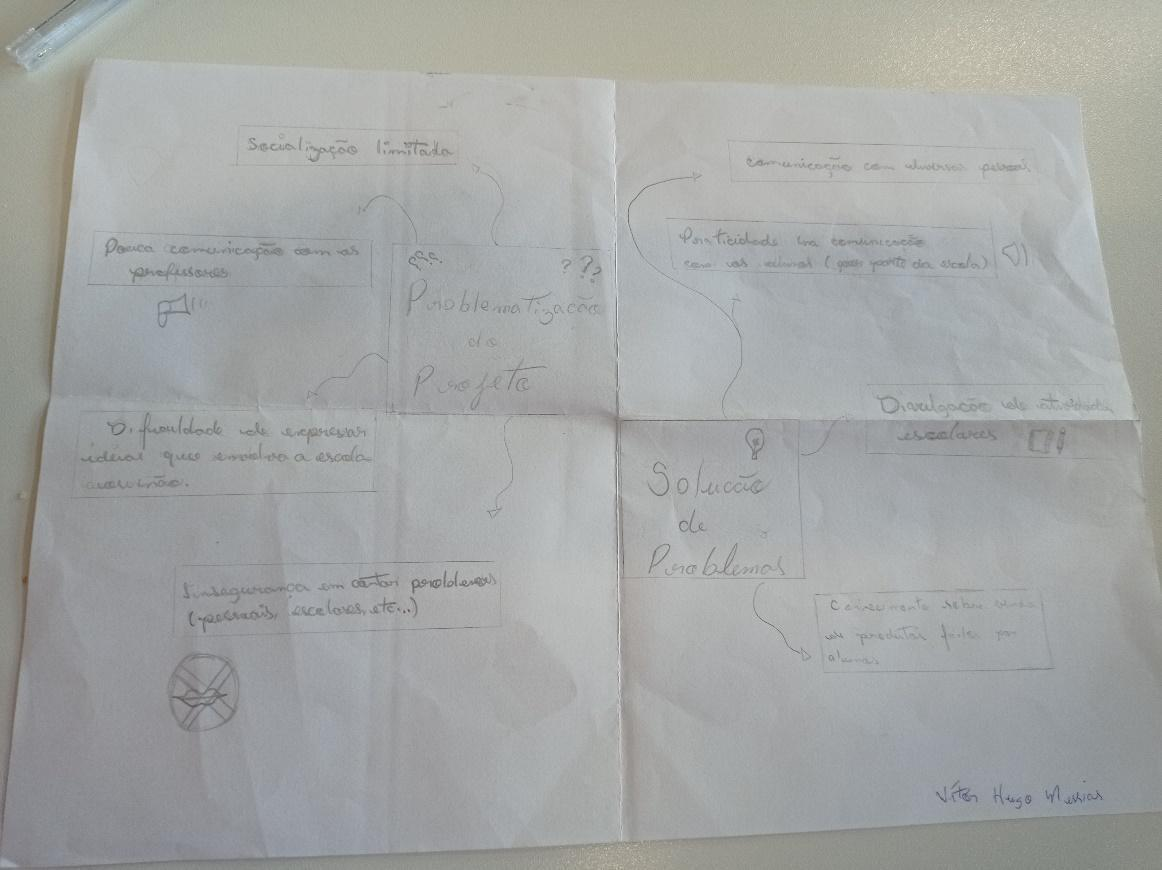 Socialização limitada
Pouca comunicação com os
professores
???
Problematização
do
Projeto
Dificuldade de expressar
ideias que envolva a escola
ou não.
Insegurança em contar problemas
(pessoais, escolares, etc...)
comunicação com diversas pessoas
Praticidade na comunicação
com os alunos (por parte da escola)
Divulgação de atividades
escolares
Solução
de
Problemas
Conhecimento sobre venda
de produtos feitos por
alunos
Vitor Hugo Messias